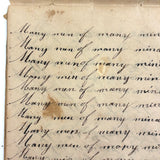 Many men of many mind
Many men of many mind
Many men of many min
Many men of many mind
Many men of many min
Many men of many min
Many men of many min
Many men of many min
Many men of many
Many men of many